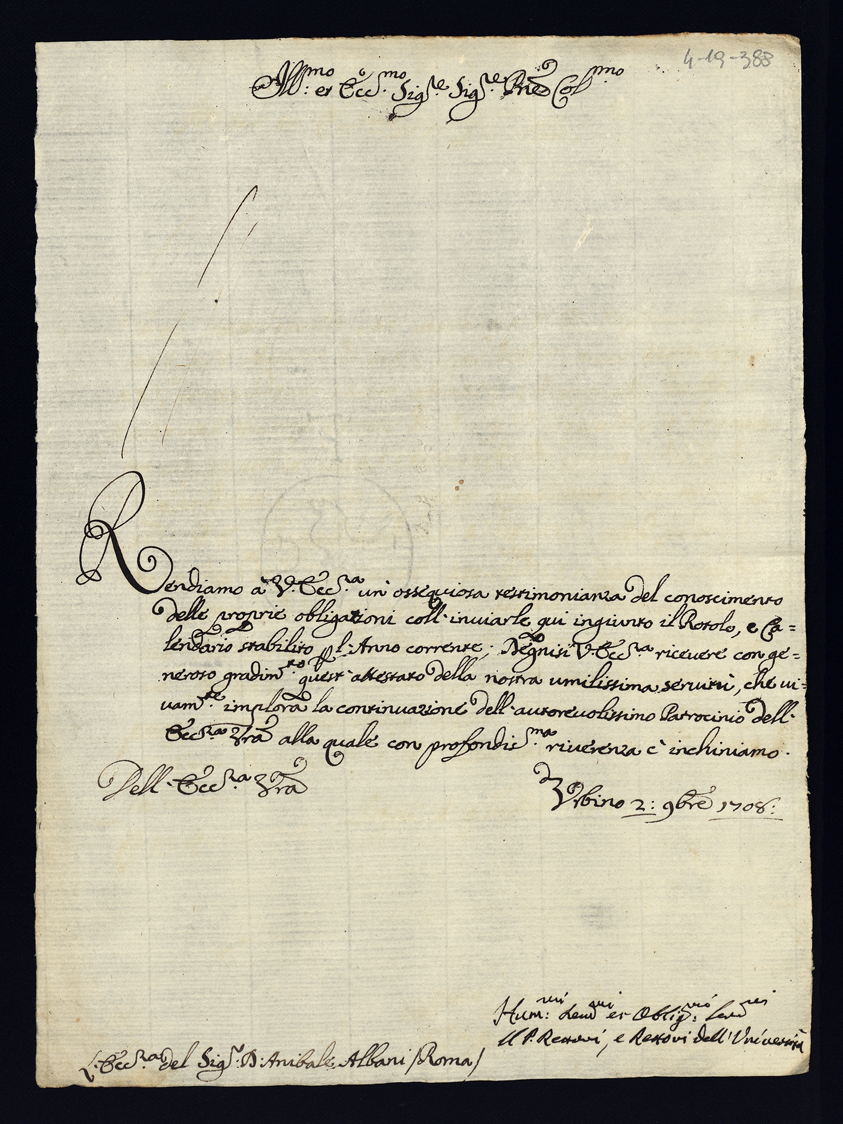 4-19-388
Ill:mo et Ecc:mo Sig:re Sig:re Pne Col:mo
Rendiamo à V. Ecc:za un' ossequiosa testimonianza del conoscimento
delle proprie obligationi coll' inviarle qui ingiunto il Rotolo, e Ca=
lendario stabilito pl' Anno corrente; Degnisi V. Ecc:za ricevere con ge=
neroso gradim:to quest' attestato della nostra umilissima servitù, che vi=
vam:te implora la continuazione dell' autorevolissimo Patrocinio dell'
Ecc:za Vra alla quale con profondiss:ma riverenza c' inchiniamo.
Dell' Ecc:za Vra
Urbino 2: 9bre 1708:
Hum:mi Dev:mi et Oblig:mi Serv:ri
Il P. Rettori, e Rettori dell' Università
S. Ecc:za del Sig:r D: Anibale Albani /Roma/